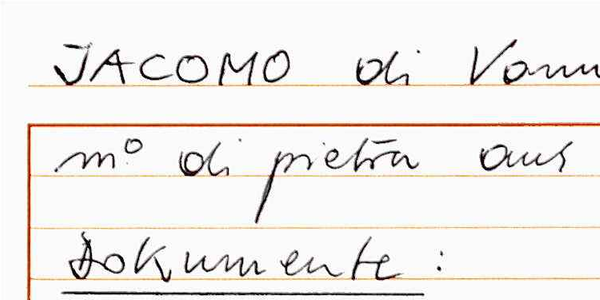 JACOMO di Vann
m° di pietra aus
Dokumente: